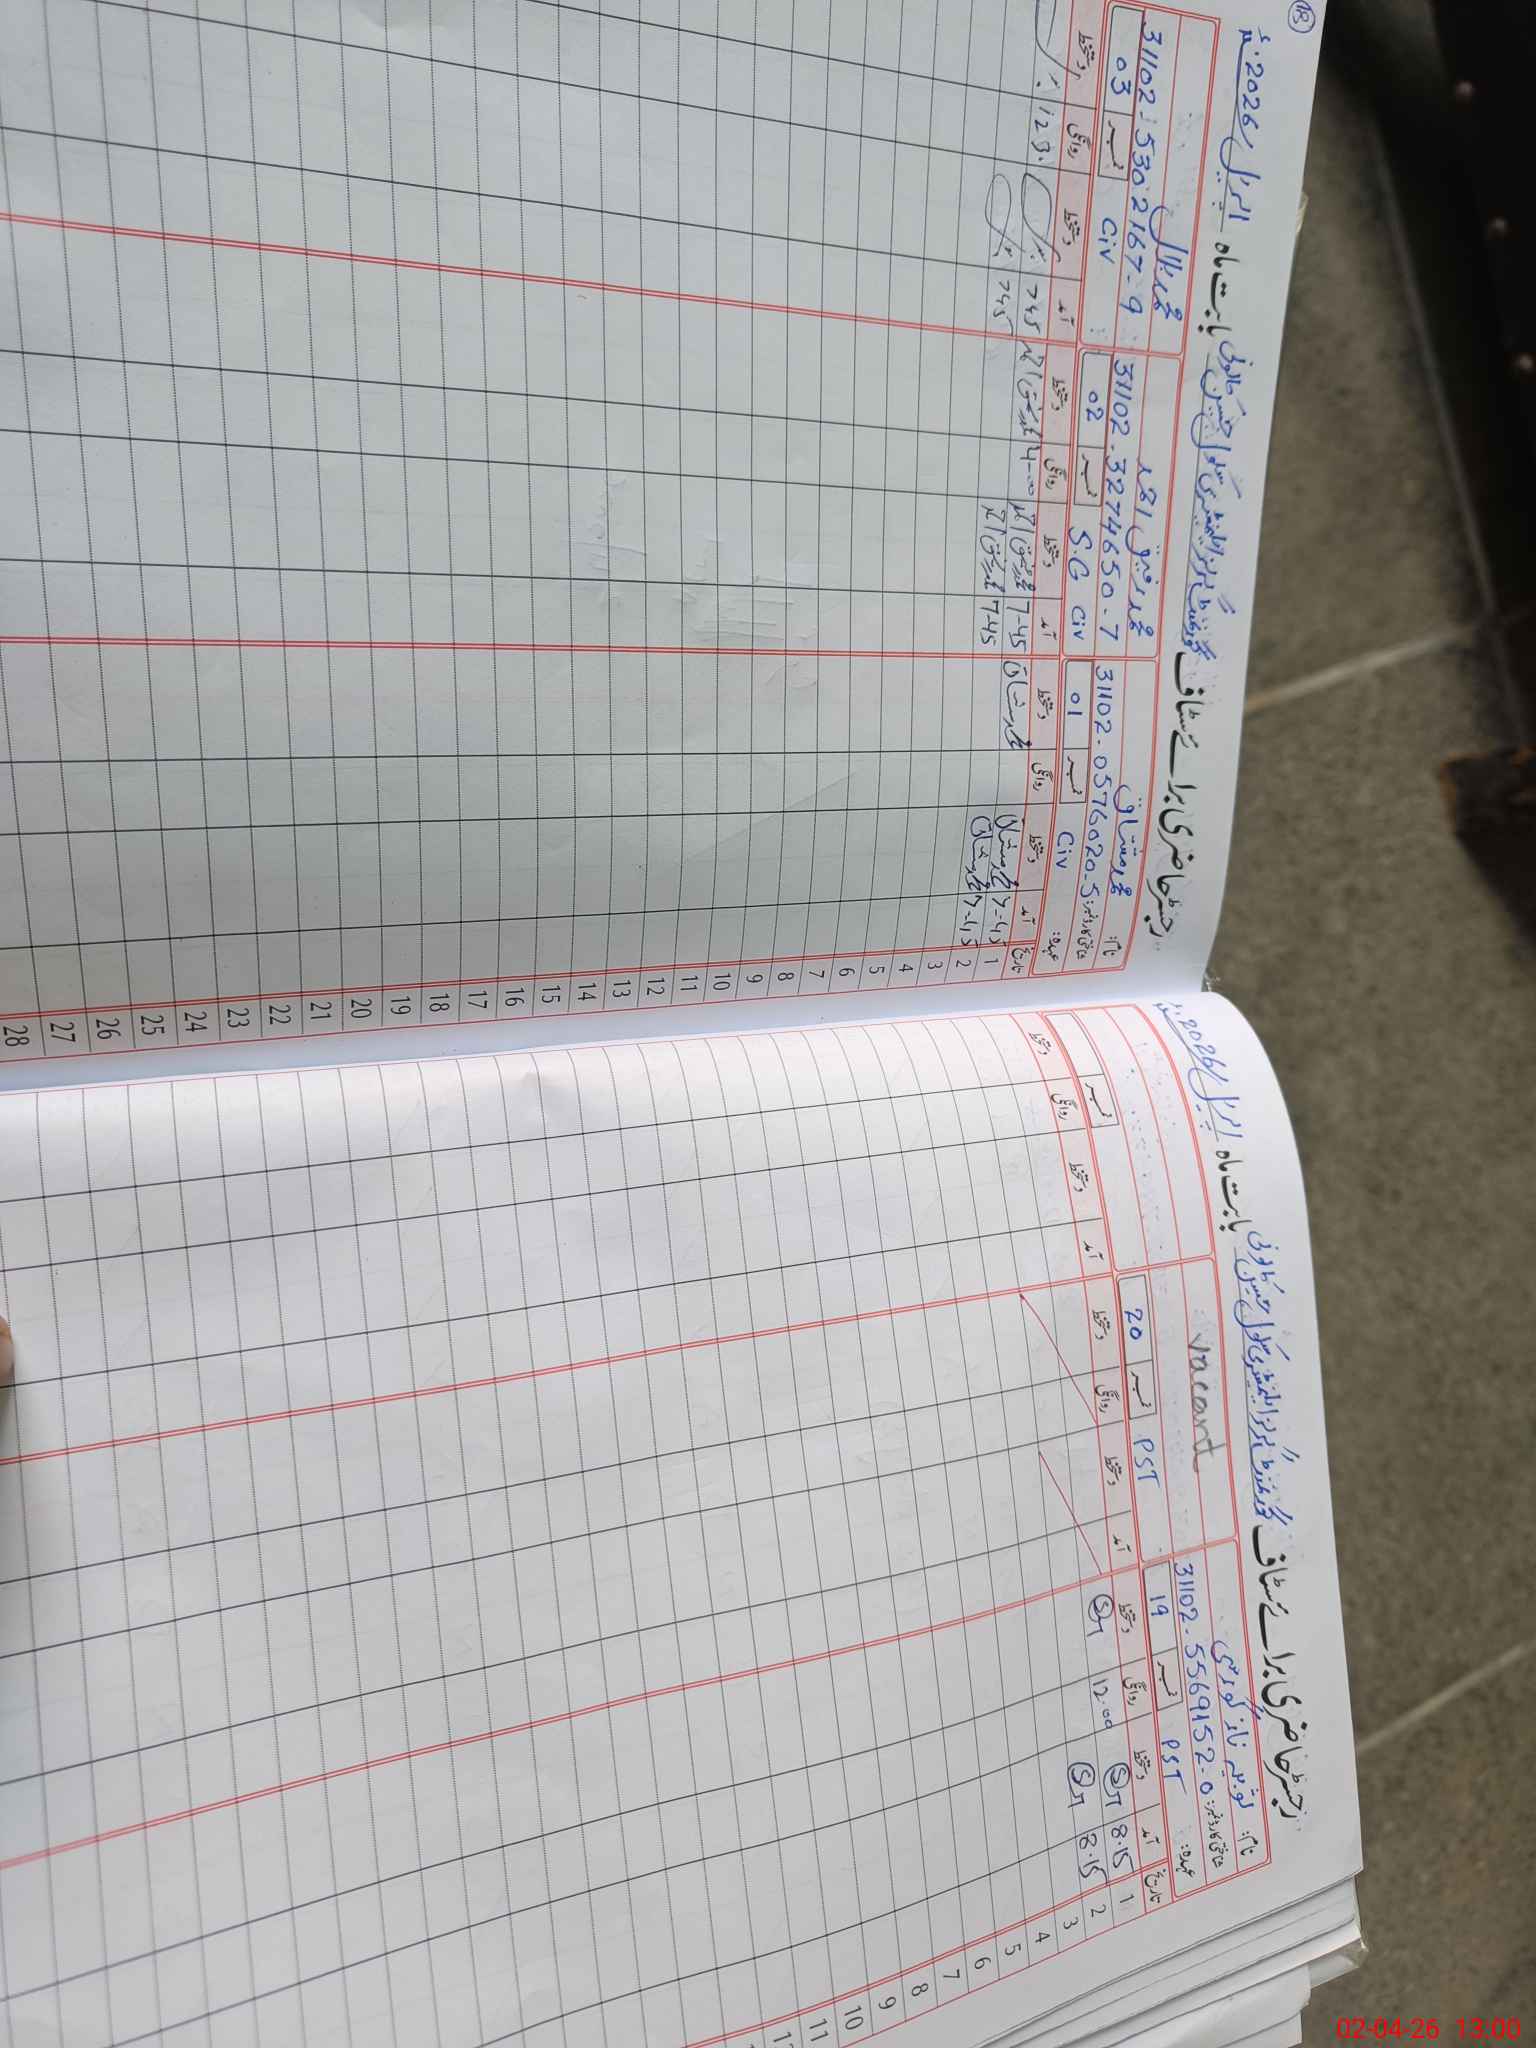 رجسٹر حاضری برائے سٹاف گورنمنٹ گرلز ایلیمنٹری سکول حسین کالونی بابت ماہ اپریل 2026ء
نام: محمد مشتاق
شناختی کارڈ نمبر: 31102-0576020-5
عہدہ: Civ نمبر 01
محمد رفیق احمد
31102-3274650-7
S.G Civ نمبر 02
محمد بلال
31102-5302167-9
Civ نمبر 03
تاریخ آمد دستخط روانگی دستخط آمد دستخط روانگی دستخط آمد دستخط روانگی دستخط
1 7-45 محمد مشتاق محمد مشتاق 7-45 محمد رفیق احمد 4-00 محمد رفیق احمد 745
2 7-45 محمد مشتاق 7-45 محمد رفیق احمد 745
3
4
5
6
7
8
9
10
11
12
13
14
15
16
17
18
19
20
21
22
23
24
25
26
27
28
رجسٹر حاضری برائے سٹاف گورنمنٹ گرلز ایلیمنٹری سکول حسین کالونی بابت ماہ اپریل 2026ء
نام:
شناختی کارڈ نمبر: 31102-5569152-0
عہدہ: PST نمبر 19
vacant
PST نمبر 20
نمبر
تاریخ آمد دستخط روانگی دستخط آمد دستخط روانگی دستخط آمد دستخط روانگی دستخط
1 8.15 12.00
2 8.15
3
4
5
6
7
8
9
10
11
02-04-26 13:00